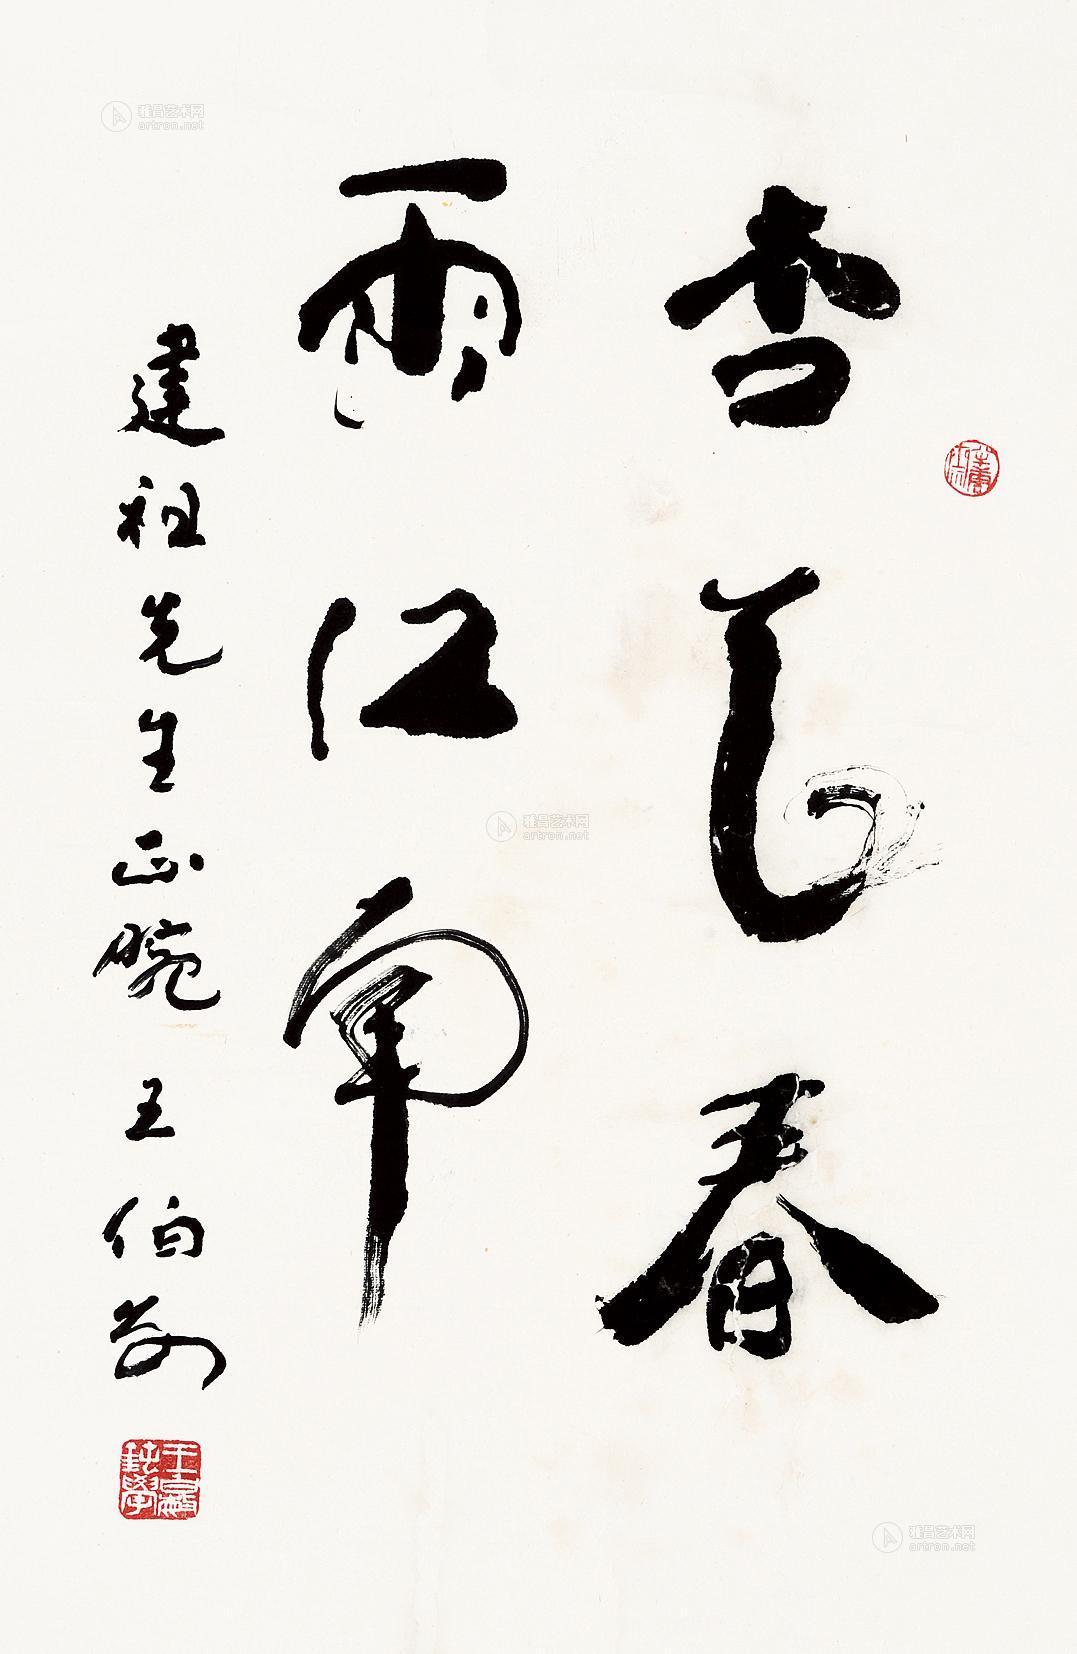 杏花春
雨江南
建祖先生正腕 王伯敏
雅昌艺术网
artron.net
雅昌艺术网
artron.net
雅昌艺术网
artron.net